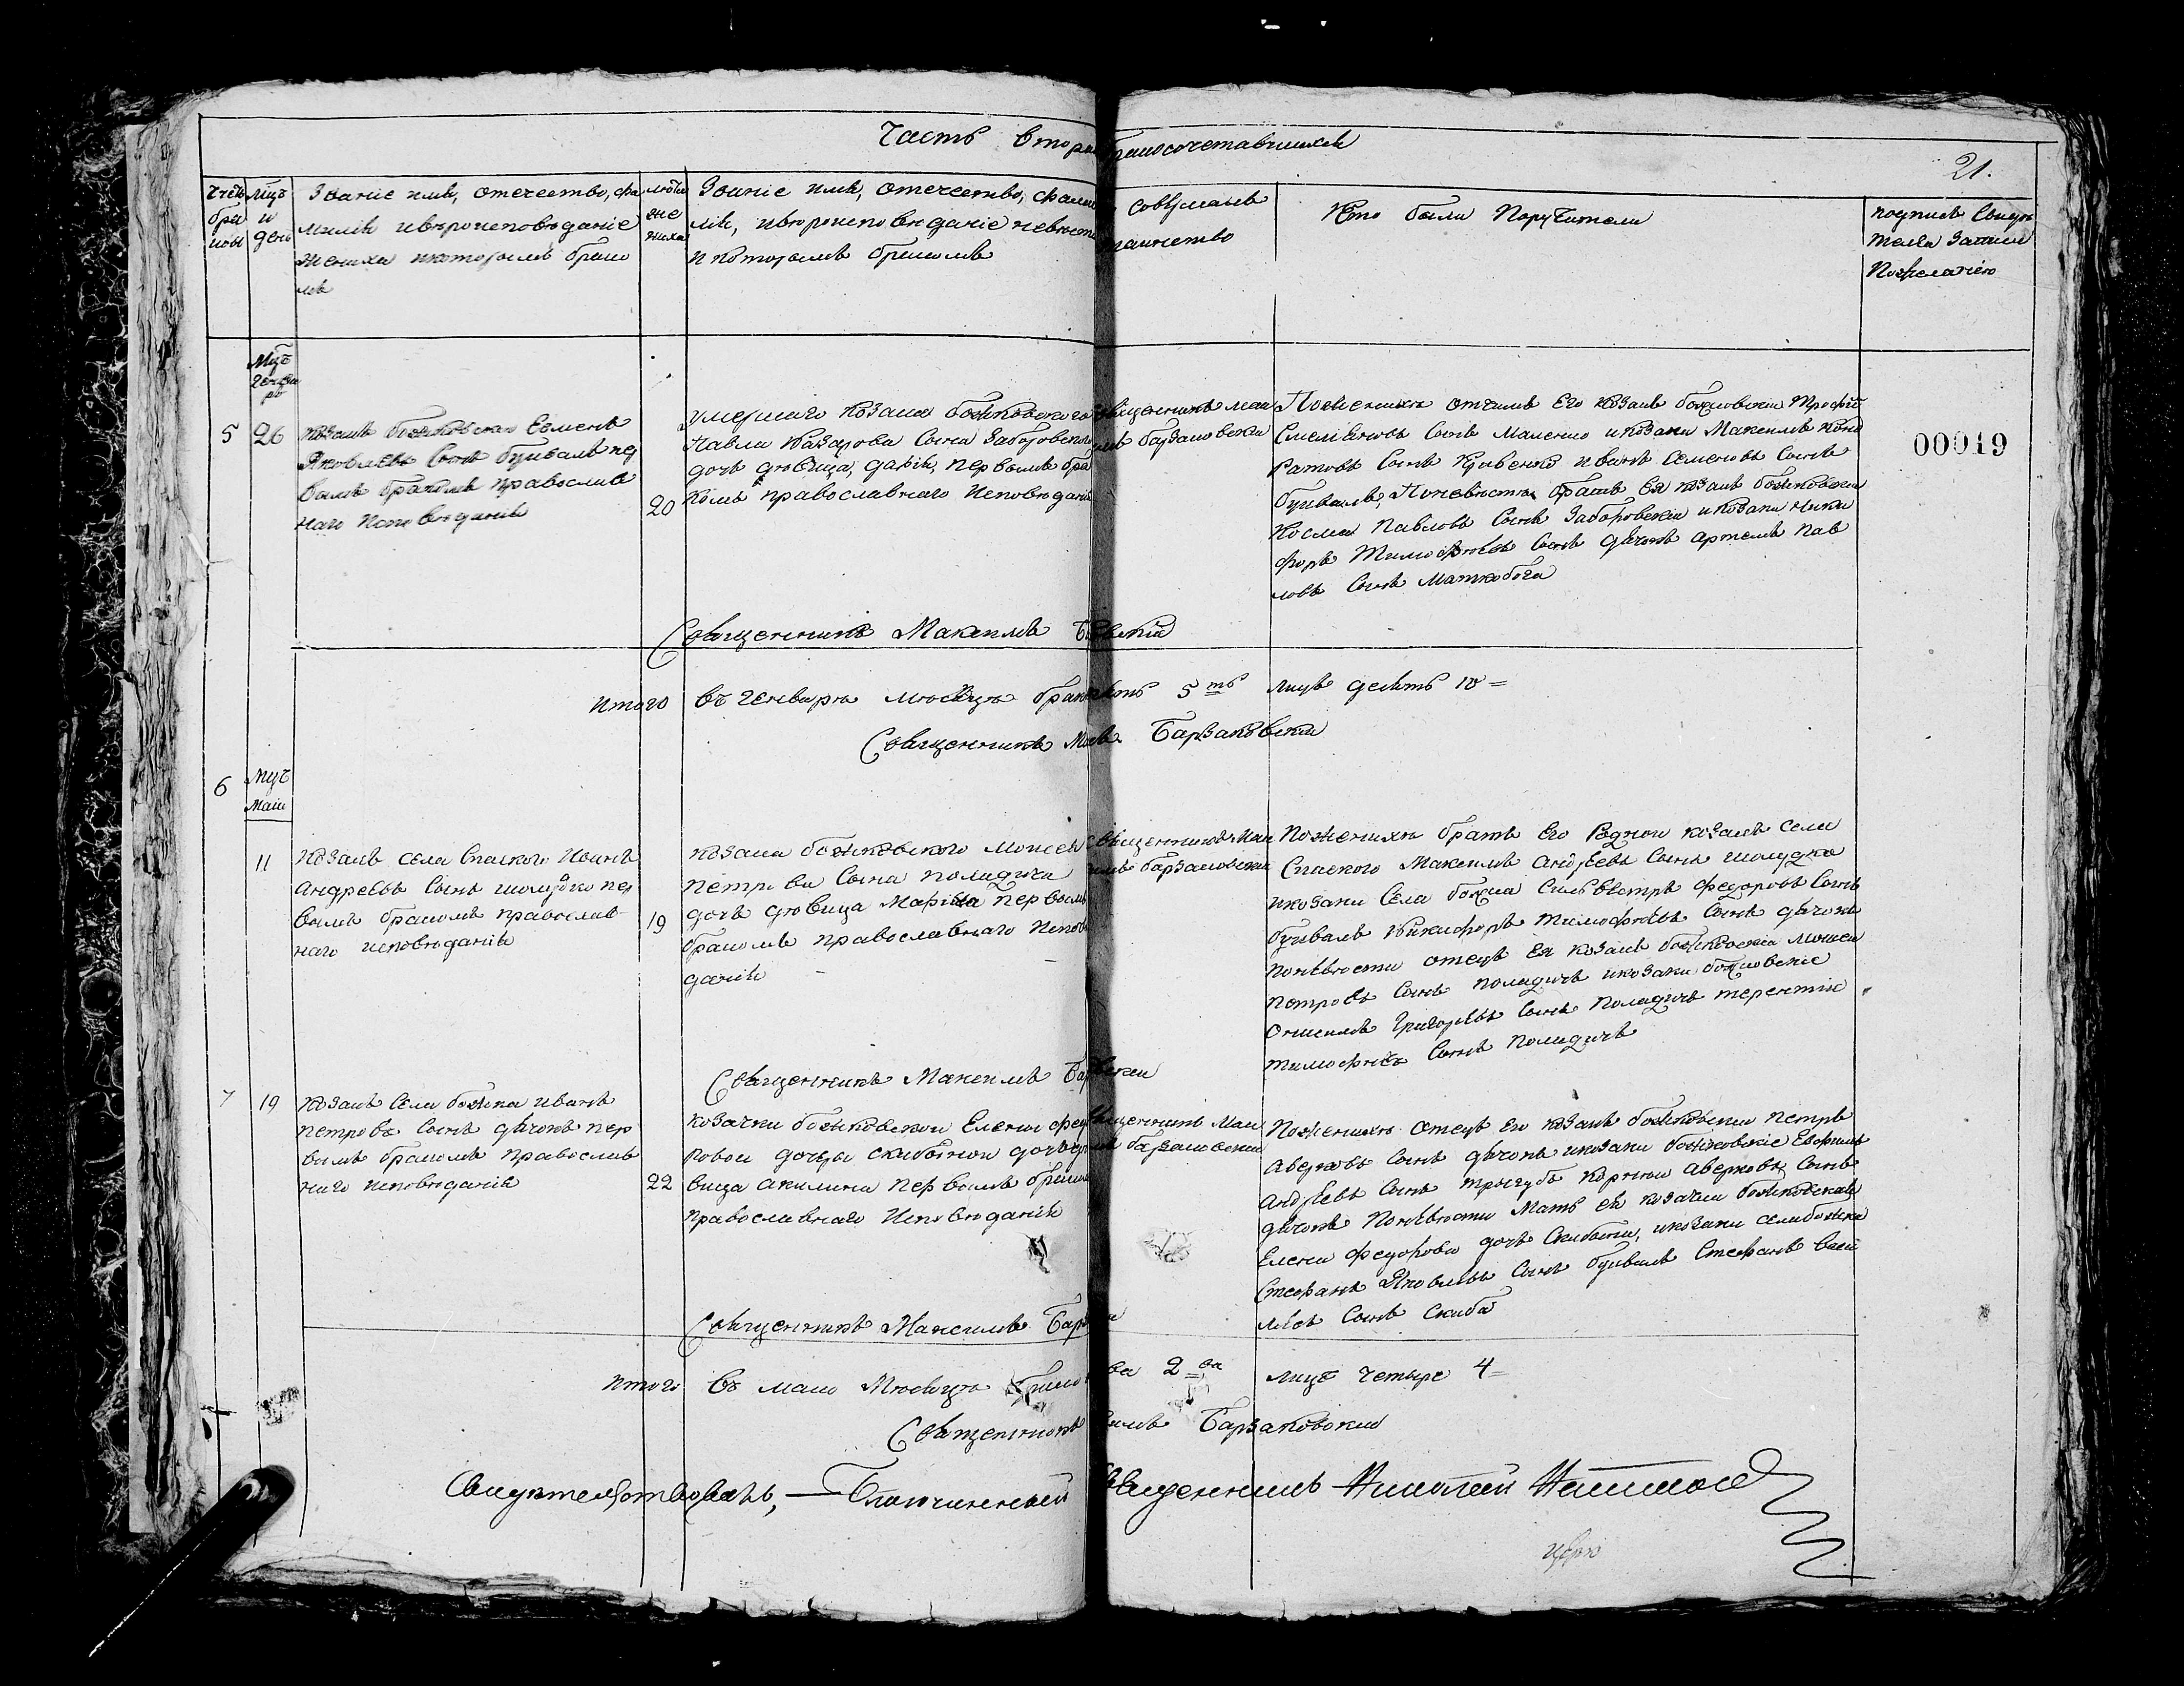 Часть втора бракосочетавшихся
21.
счетъ бра ковъ
мцъ и день
Званіе имя, отечество, фа
милія ивероисповѣданіе
жениха икоторымъ брако
мъ
лѣта же ниха
Званіе имя, отечество, фами
лія, ивѣроисповѣданіе невѣсты
и которымъ бракомъ
совершалъ
таинство
Кто были Поручители
подписъ Свидѣ
телей записи
Пожеланію
5
Мцъ
Генва
ръ
26
козакъ божковскій Есменъ
Яковлевъ Сынъ буцвалъ пер
вымъ бракомъ православ
наго исповѣданія
20
умершаго козака божковского
Павла Назарова Сына Заборовского
дочь дѣвица, дарія, первымъ бра
комъ православнаго исповѣданія
священникъ мак
имъ барзаковскій
Пожениху отчимъ Его козакъ божковскій Трофи
Емеліяновъ Сынъ Маленко икозаки Максимъ Конд
ратовъ Сынъ Кривенко иванъ Семеновъ Сынъ
буцвалъ, Поневѣстѣ братъ Ея козакъ божковскій
Косма Павловъ Сынъ Заборовскій икозаки Ники
форъ Тимофѣевъ Сынъ дячокъ артемъ пав
ловъ Сынъ Маткобога
00019
Священникъ Максимъ Ба вскій
Итого въ генварѣ мѣсяцѣ браковъ 5ть лицъ десять 10=
Священникъ Мак Барзаковскій
6
мцъ
маія
11
козакъ села Спаского Иванъ
Андреевъ Сынъ шолудко пер
вымъ бракомъ православ
наго исповѣданія
19
козака божковского Моисея
Петрова Сына поладича
дочь дѣвица Марина первымъ
бракомъ православнаго испов
данія
Священникъ Мак
имъ барзаковскій
Пожениху братъ Его Родной козакъ села
Спаского Максимъ андреевъ Сынъ шолудко
икозаки Села божка Сильвестръ федоровъ Сынъ
буцвалъ Никифоръ Тимофѣевъ Сынъ дячокъ
поневѣсти отецъ Ея козакъ божковскій Моисей
Петровъ Сынъ поладичъ икозаки божковскіе
Онисимъ Григорьевъ Сынъ Поладичъ терентій
тимофѣевъ Сынъ Поладичъ
Священникъ Максимъ Барз вскій
7
19
козакъ Села божка иванъ
петровъ Сынъ дячокъ пер
вымъ бракомъ православ
наго исповѣданія
22
козачки божковской Елены фед
ровой дочери скибиной дочь д
вица акилина первымъ браком
православнаго Исповѣданія
священникъ Мак
имъ барзаковскій
Пожениху Отецъ Его козакъ божковскій петръ
аверковъ Сынъ дячокъ икозаки божковскіе Евфимъ
андреевъ Сынъ трыгубъ корній аверковъ Сынъ
дячокъ Поневѣсти Мать ея козачка божковская
Елена федорова дочь Скибина, икозаки села божка
Стефанъ Яковлевъ Сынъ буцвалъ Стефанъ васи
ліевъ Сынъ Скиба
Священникъ Максимъ Барз
Итого въ маю Мѣсяцѣ брако ва 2ва лицъ четыре 4=
Священникъ имъ Барзаковскій
Свидѣтелствовалъ, — Благочинный Священникъ Николай